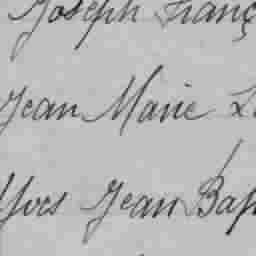 Joseph Franç
Jean Marie L
Yves Jean Bap